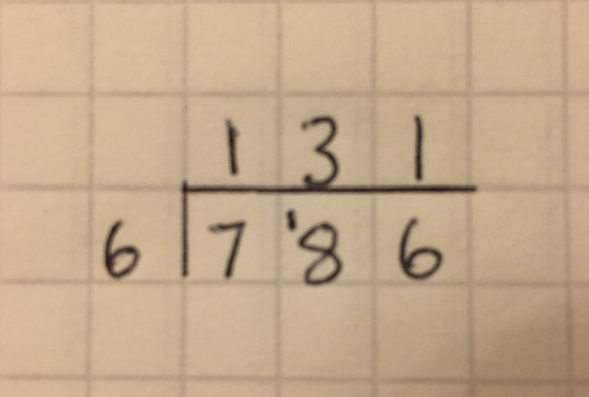 1 3 1
6 7 1 8 6